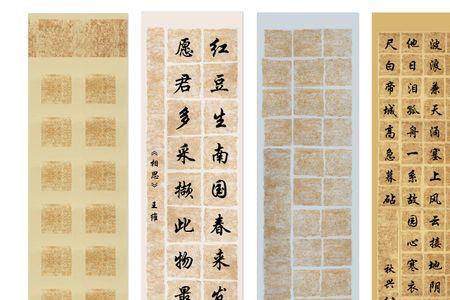 红豆生南国春来发
愿君多采撷此物最
《相思》 王维
波浪兼天涌塞上风云接地阴
他日泪孤舟一系故园心寒衣
尺白帝城高急暮砧
秋兴